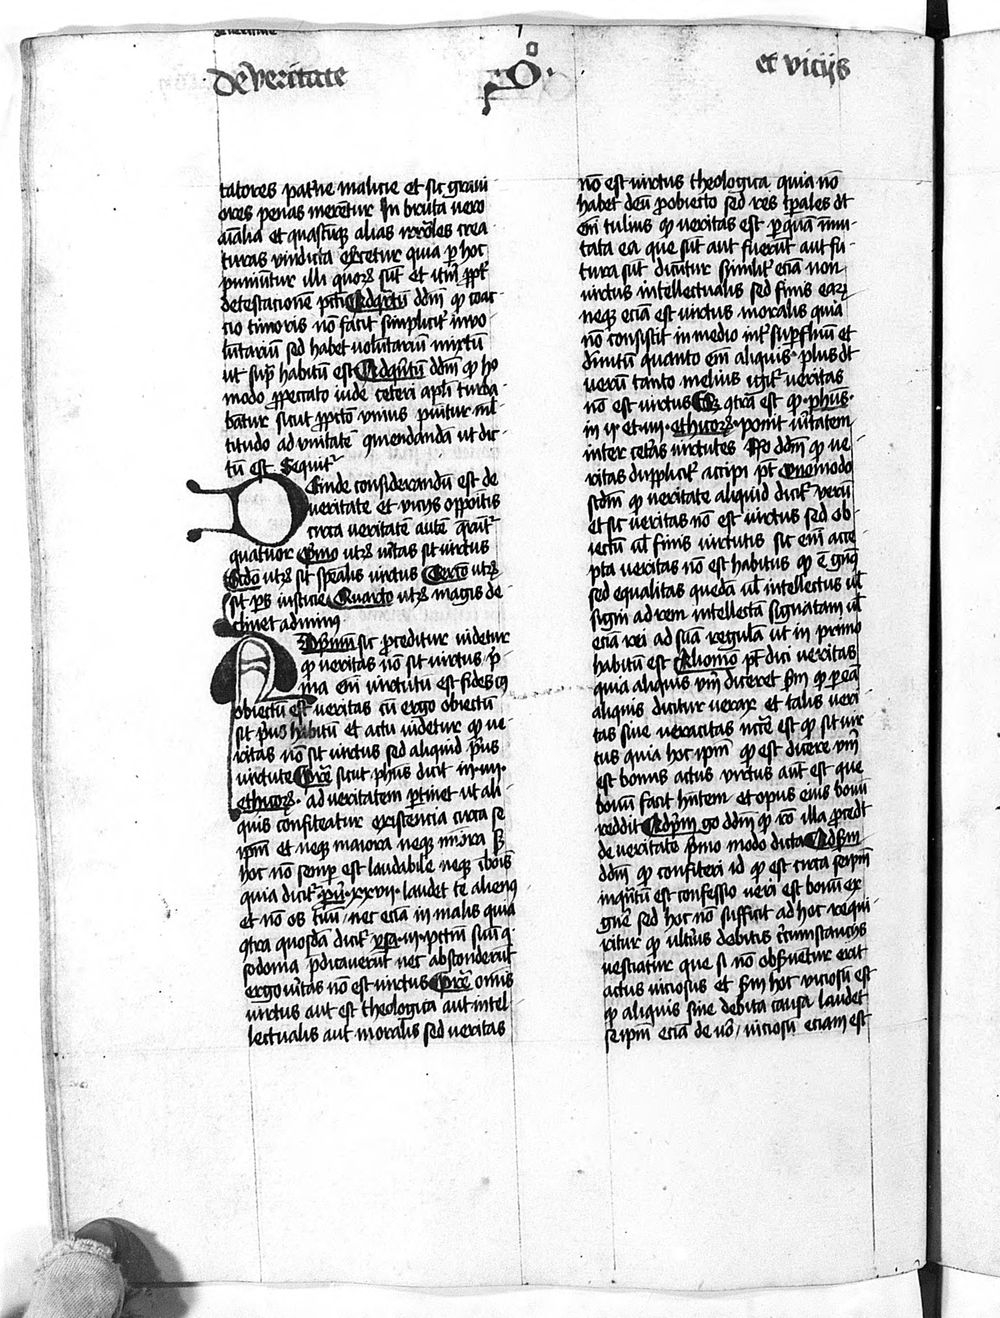 de veritate
qo
et vicijs
tatores pat'ne malicie et sic gravi
ores penas merētur In bruta vero
aīalia et quascūqȝ alias irrōles crea
turas vindicta exercetur quia p hoc
puniūtur illi quorꝝ sūt et itm̄ ppt'
detestacionē pcti Ad qrtū ddm̄ qp coac
cio timoris nō facit simplicit' invo
lūtariū sed habet volūtariū mixtū
ut sup̄ habitū est Ad qntū ddm̄ qp ho
modo p peccato iude ceteri apli turba
bātur sicut p pctō vnius punitur ml'
titudo ad vnitatē 9mendandā ut dic
tū est Sequit'
Deinde considerandū est de
veritate et vicijs oppoitis
circa veritatē autē qrūt'
quatuor Primo utȝ v'itas sit virtus
Scdo utȝ sit spēalis virtus Tercio utȝ
sit ps iusticie Quarto utȝ magis de
clinet ad min9
Ad primū sic proceditur videtur
qp veritas nō sit virtus p̄
ma em̄ virtutū est fides c9
obiectū est veritas cū ergo obiectū
sit p'us habitū et actu videtur qp ve
ritas nō sit virtus sed aliquid p'us
virtute Pret'e sicut phūs dicit in iiij.
ethicorꝝ. ad veritatem ptinet ut ali
quis confiteatur existencia circa se
ipm̄ et neqȝ maiora neqȝ mīora sȝ
hoc nō semp est laudabile neqȝ ī bois
quia dicit' pu. xxvij. laudet te alien9
et nō os tuū, nec ecia in malis quia
9tra quosdā dicit' ysa. iij. pctm̄ suū q̄
sodoma p̄dicaverūt nec absconderūt
ergo v'itas nō est virtus Pret'e omīs
virtus aut est theologica aut intel
lectualis aut moralis sed veritas
nō est virtus theologica quia nō
habet deū p obiecto sed res tp̄ales dt
em̄ tulius qp veritas est p quā īmu
tata ea que sūt aut fuerūt aut fu
tura sūt dicūtur Similit' ecia non
virtus intellectualis sed finis earꝝ
neqȝ ecia est virtus moralis quia
nō consistit in medio int' supfluū et
dimitū quanto em̄ aliquis plus dt
verū tanto melius igit' veritas
nō est virtus 9tra est qp phūs
in ij et iiij. ethicorꝝ. ponit v'itatem
inter cet'as virtutes Rō ddm̄ qp ve
ritas duplicit' accipi pt̄ Uno modo
scdm̄ qp veritate aliquid dicit' verū
et sic veritas nō est virtus sed ob
iectū ul' finis virtutis sic em̄ acce
pta veritas nō est habitus qp ē gn9
sed equalitas quedā ul' intellectus ul'
signi ad rem intellectā signatam ul'
ecia rei ad suā regulā ut in primo
habitū est Alio mo pt̄ dici veritas
quia aliquis vm̄ diceret scdm qp p eā
aliquis dicitur verax et talis veri
tas sive veracitas nc̄cē est qp sit vir
tus quia hoc ipm̄ qp est dicere vm̄
est bonus actus virtus aūt est que
bonū facit hn̄tem et opus eius bonū
reddit Ad pm̄ go ddm̄ qp rō illa procedt
de veritate primo modo dicta Ad scdm
ddm̄ qp confiteri id qp est circa seipm̄
inqntū est confessio veri est bonū ex
gn̄e sed hoc nō sufficit ad hoc requi
ritur qp ult'ius debitis circumstancijs
vestiatur que si nō obs'vetur erit
actus viciosus et scdm hoc viciosū est
qp aliquis sine debita causa laudet
seipm̄ ecia de vo, viciosū eciam est